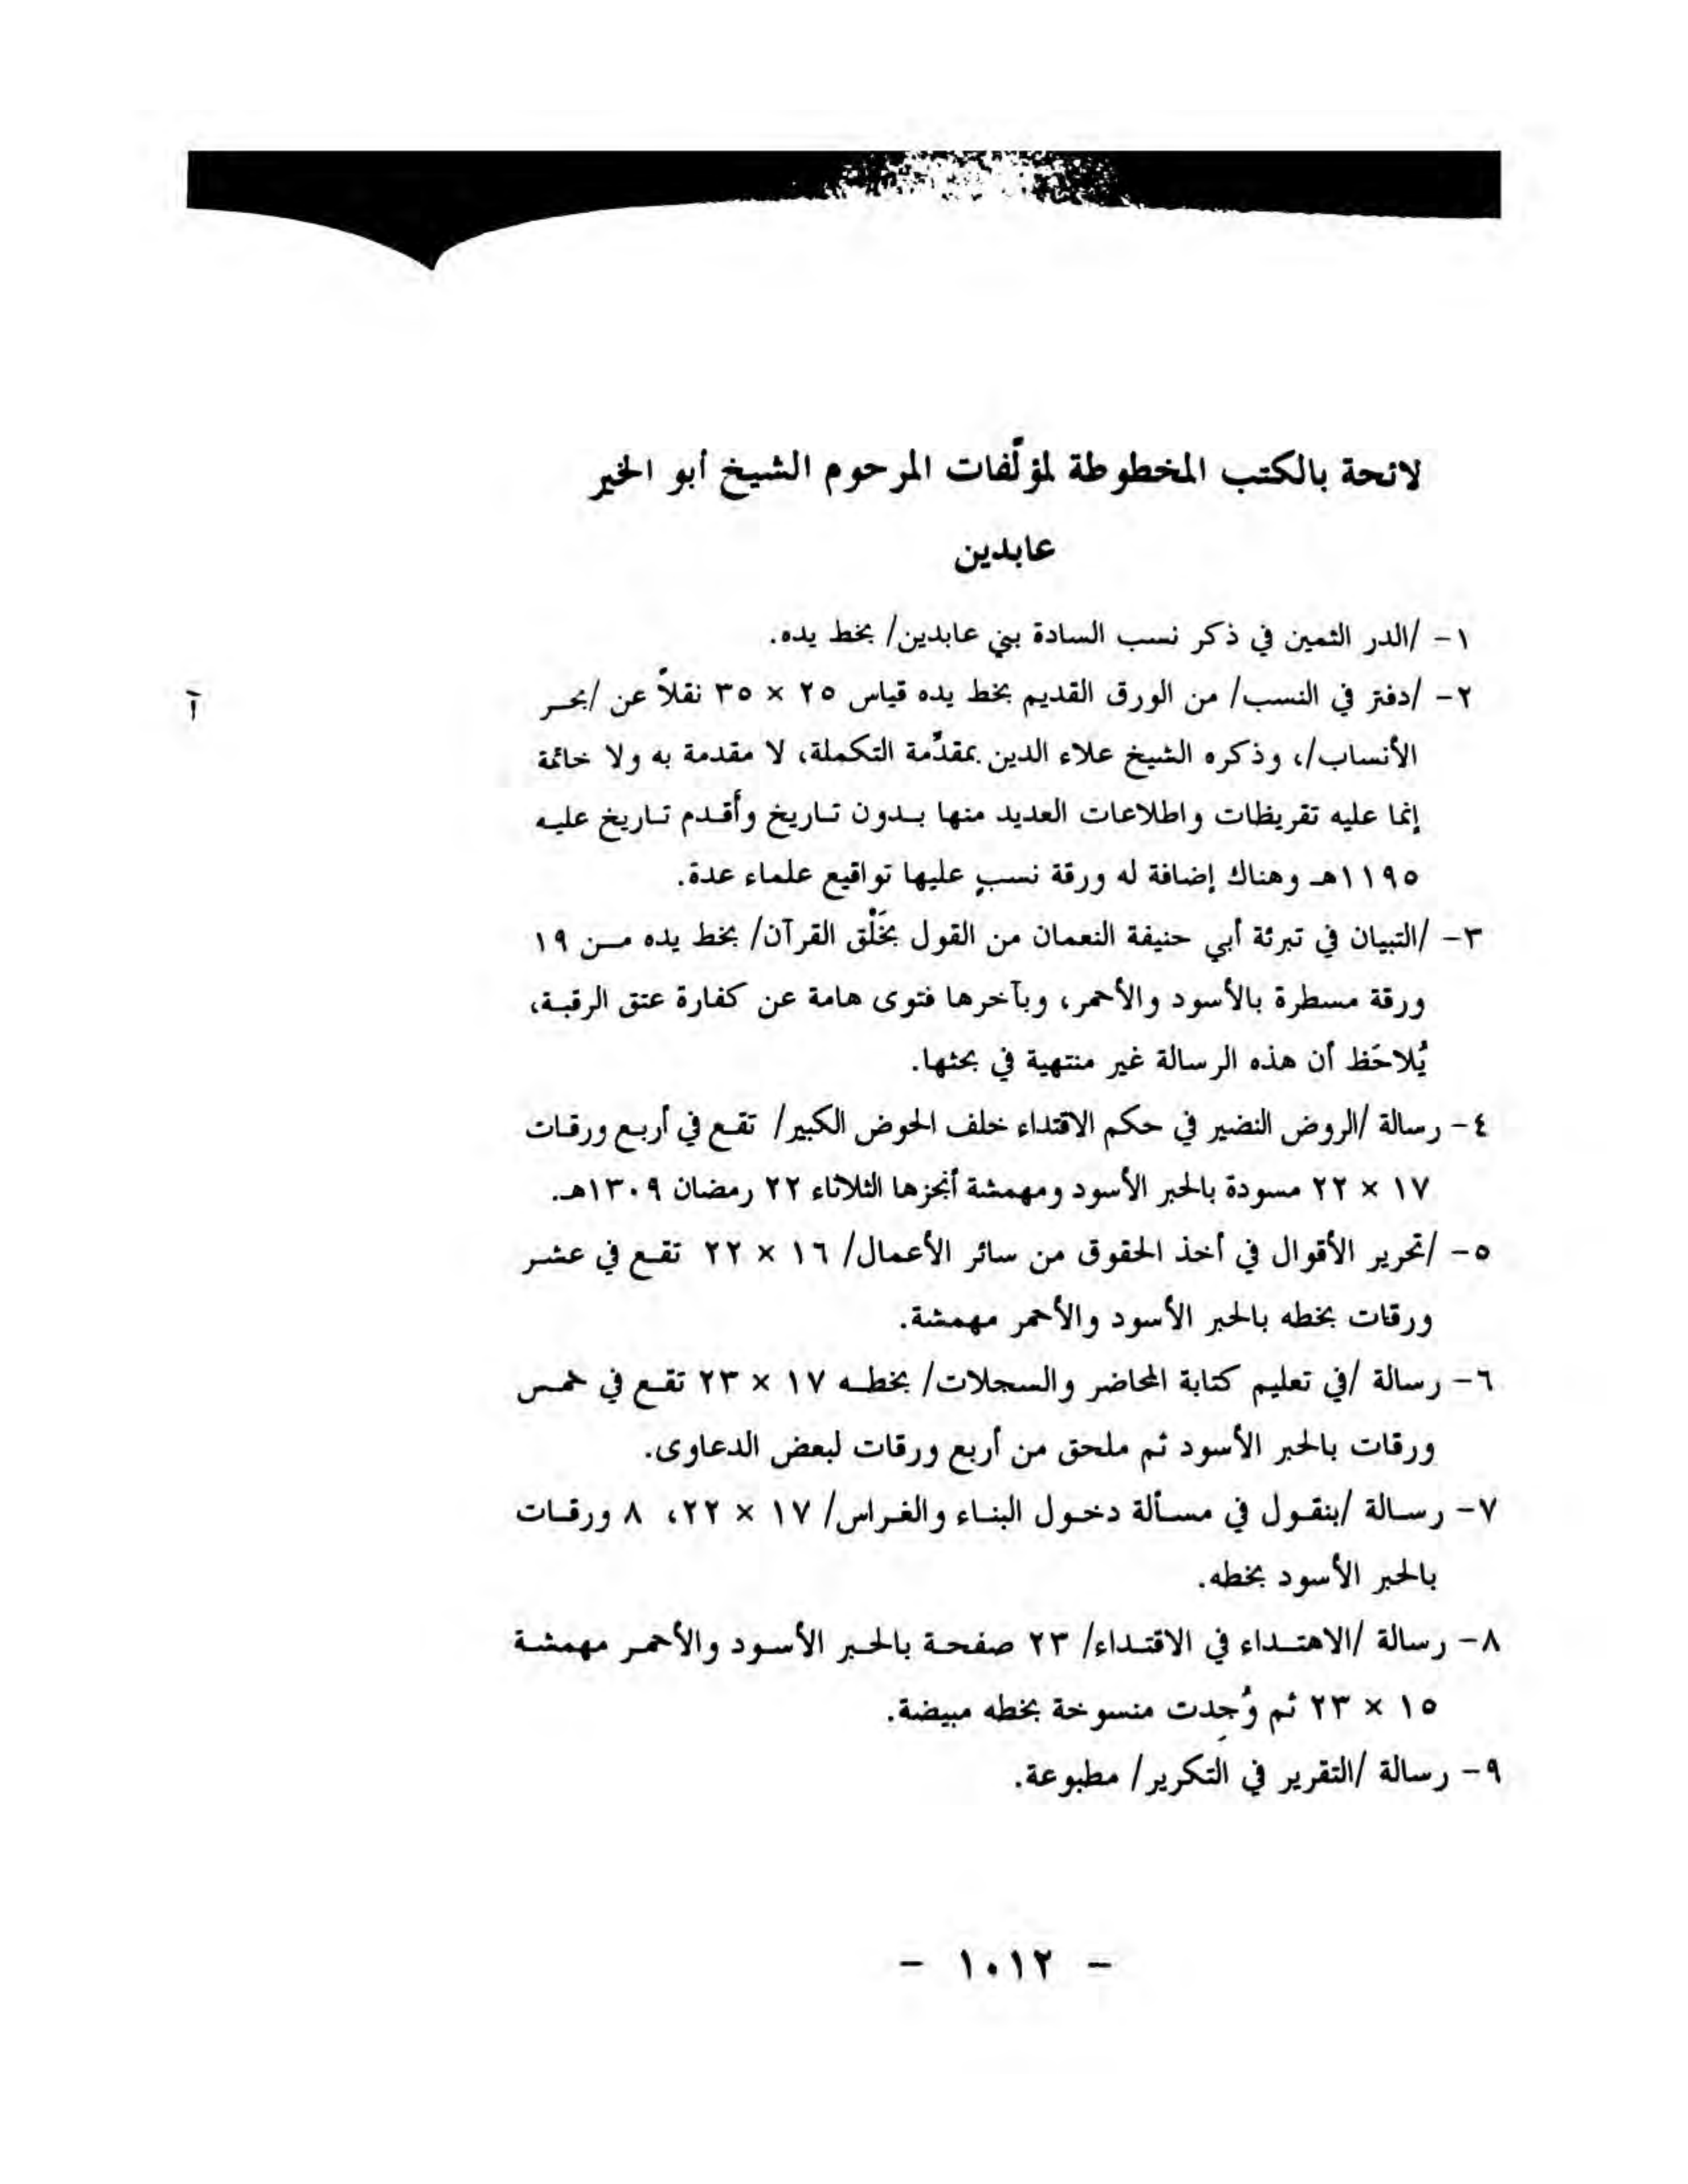 لائحة بالكتب المخطوطة لمؤلّفات المرحوم الشيخ أبو الخير
عابدين
١- /الدر الثمين في ذكر نسب السادة بني عابدين/ بخط يده.
٢- /دفتر في النسب/ من الورق القديم بخط يده قياس ٢٥ × ٣٥ نقلاً عن /بحر
آ
الأنساب/، وذكره الشيخ علاء الدين بمقدّمة التكملة، لا مقدمة به ولا خاتمة
إنما عليه تقريظات واطلاعات العديد منها بدون تاريخ وأقدم تاريخ عليه
١١٩٥هـ وهناك إضافة له ورقة نسبٍ عليها تواقيع علماء عدة.
٣- /التبيان في تبرئة أبي حنيفة النعمان من القول بخَلْق القرآن/ بخط يده من ١٩
ورقة مسطرة بالأسود والأحمر، وبآخرها فتوى هامة عن كفارة عتق الرقبة،
يُلاحَظ أن هذه الرسالة غير منتهية في بحثها.
٤- رسالة /الروض النضير في حكم الاقتداء خلف الحوض الكبير/ تقع في أربع ورقات
١٧ × ٢٢ مسودة بالحبر الأسود ومهمشة أنجزها الثلاثاء ٢٢ رمضان ١٣٠٩هـ.
٥- /تحرير الأقوال في أخذ الحقوق من سائر الأعمال/ ١٦ × ٢٢ تقع في عشر
ورقات بخطه بالحبر الأسود والأحمر مهمشة.
٦- رسالة /في تعليم كتابة المحاضر والسجلات/ بخطه ١٧ × ٢٣ تقع في خمس
ورقات بالحبر الأسود ثم ملحق من أربع ورقات لبعض الدعاوى.
٧- رسالة /بنقول في مسألة دخول البناء والغراس/ ١٧ × ٢٢، ٨ ورقات
بالحبر الأسود بخطه.
٨- رسالة /الاهتداء في الاقتداء/ ٢٣ صفحة بالحبر الأسود والأحمر مهمشة
١٥ × ٢٣ ثم وُجِدت منسوخة بخطه مبيضة.
٩- رسالة /التقرير في التكرير/ مطبوعة.
- ١٠١٢ -